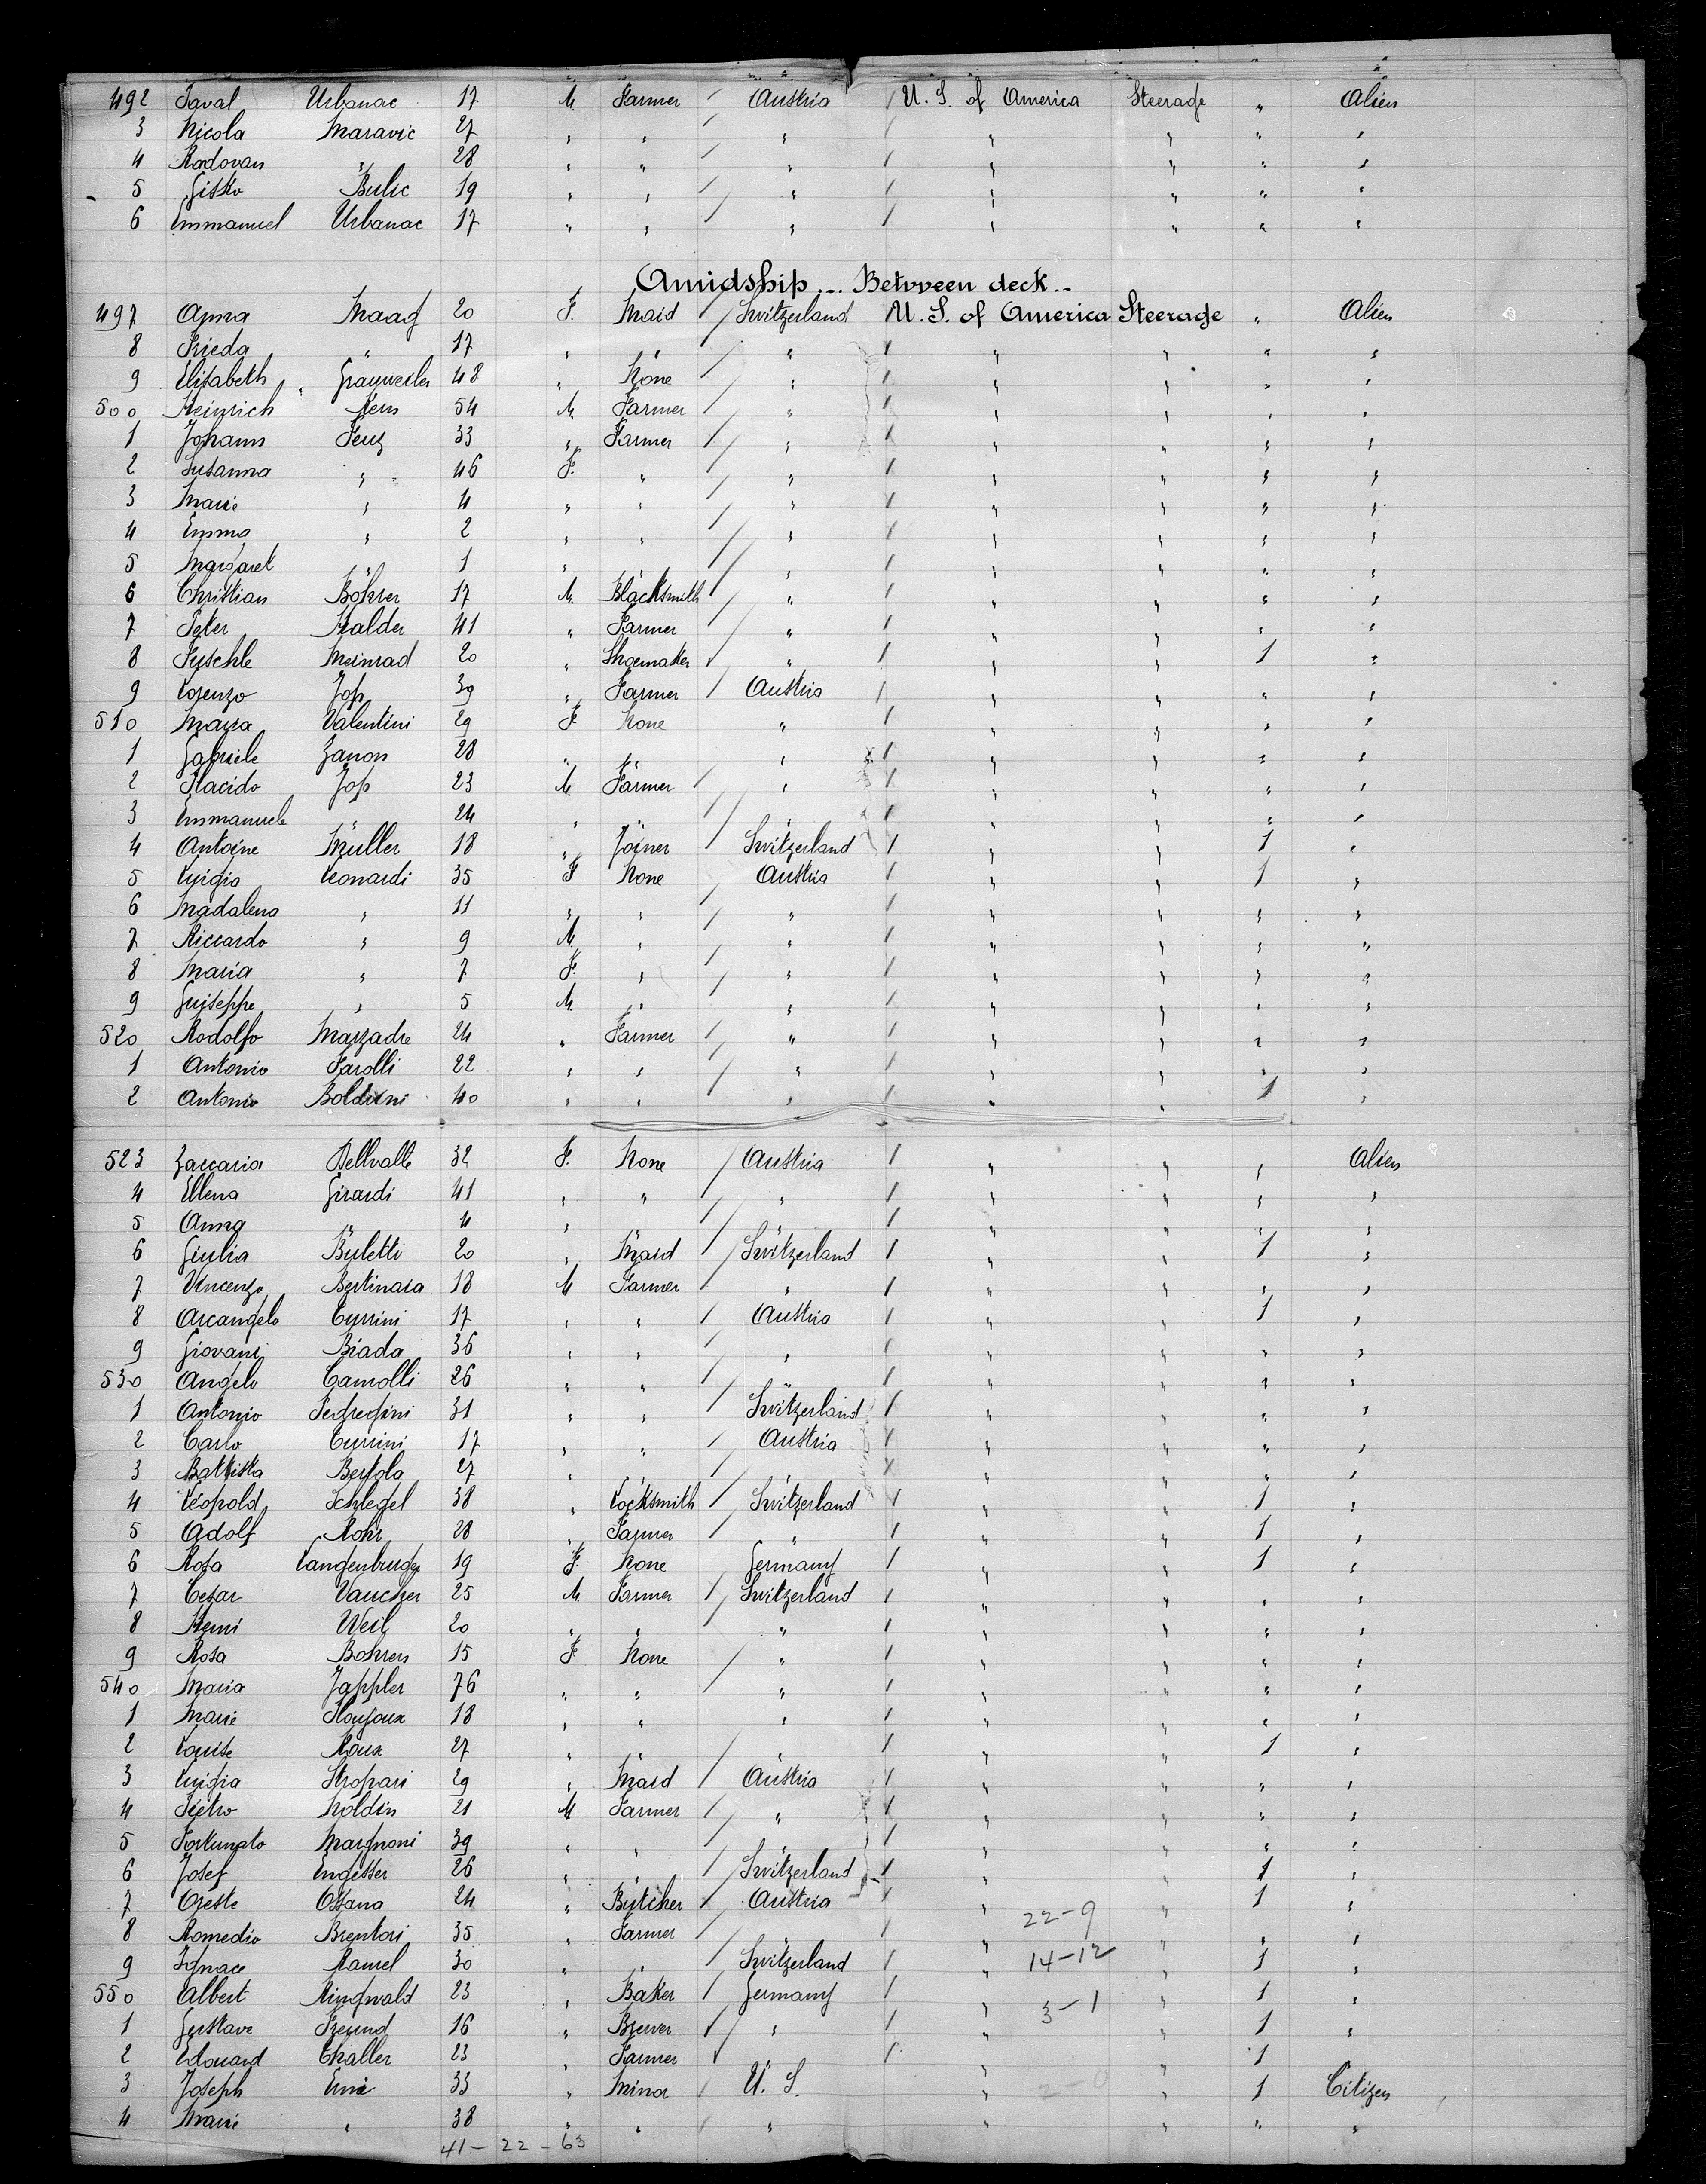 492 Paval Urbanac 17 M. Farmer / Austria / U. S. of America Steerage " Alien
3 Nicola Maravic 27 " " / " / " " " "
4 Radovan " 28 " " / " / " " " "
5 Bulic 19 " " / " / " " " "
6 Emmanuel Urbanac 17 " " / " / " " " "
Amidship ... Between deck ..
497 Anna Maag 20 F. Maid / Switzerland U. S. of America Steerage " Alien
8 Frieda " 17 " " / " / " " " "
9 Elisabeth Grauweiler 48 " None / " / " " " "
500 Heinrich Kern 54 M. Farmer / " / " " " "
1 Johann Feuz 33 " Farmer / " / " " " "
2 Susanna " 46 F. " / " / " " " "
3 Marie " 4 " " / " / " " " "
4 Emma " 2 " " / " / " " " "
5 Margaret " 1 " " / " / " " " "
6 Christian Bohrer 17 M. Blacksmith / " / " " " "
7 Peter Halder 41 " Farmer / " / " " " "
8 Meinrad 20 " Shoemaker / " / " " 1 "
9 Lorenzo Jop 39 " Farmer / Austria / " " " "
510 Maria Valentini 29 F None " / " " " "
1 Gabriele Zanon 28 " " " / " " " "
2 Placido Jop 23 M. Farmer / " / " " " "
3 Emmanuele " 24 " " / " / " " " "
4 Antoine Müller 18 " Joiner / Switzerland / " " 1 "
5 Luigia Leonardi 35 F None Austria / " " 1 "
6 Madalena " 11 " " / " / " " " "
7 Riccardo " 9 M. " / " / " " " "
8 Maria " 7 F. " / " / " " " "
9 Guiseppe " 5 M. " / " / " " " "
520 Rodolfo Marzadre 24 " Farmer / " / " " " "
1 Antonio Parolli 22 " " / " / " " " "
2 Antonio 40 " " " / " " 1 "
523 Zaccaria Dellvalle 32 F. None / Austria / " " " Alien
4 Ellena Girardi 41 " " / " / " " " "
5 Anna " 4 " " / " / " " " "
6 Giulia Buletti 20 " Maid / Switzerland / " " 1 "
7 Vincenzo Bertinara 18 M Farmer / " / " " " "
8 Arcangelo Turrini 17 " " / Austria / " " 1 "
9 Giovani Biada 36 " " / " / " " " "
530 Angelo Camolli 26 " " / " / " " " "
1 Antonio Pedregini 31 " " / Switzerland / " " " "
2 Carlo Turrini 17 " " / Austria / " " " "
3 Battista Bertola 27 " " / " / " " " "
4 Léopold Schlegel 38 " Locksmith / Switzerland / " " 1 "
5 Adolf Rohr 28 " Farmer / " / " " 1 "
6 Rosa 19 F. None Germany / " " 1 "
7 Cesar Vaucher 25 M. Farmer / Switzerland / " " " "
8 Henri Weil 20 " " / " / " " " "
9 Rosa Bohren 15 F None / " / " " " "
540 Maria Jappler 76 " " / " / " " " "
1 Marie 18 " " " / " " " "
2 Louise Roux 27 " " / " / " " 1 "
3 Luigia Stropari 29 " Maid / Austria / " " " "
4 Pietro Noldin 21 M Farmer / " / " " " "
5 Fortunato Margnoni 39 " " / " / " " " "
6 Josef Engesser 26 " " / Switzerland / " " 1 "
7 Oreste Ossana 24 " Butcher / Austria / " " 1 "
8 Romedio Brentari 35 " Farmer / " / " 22-9 " " "
9 Ignace Ramel 30 " " / Switzerland / " 14-12 " 1 "
550 Albert Ringwald 23 " Baker / Germany / " 3-1 " 1 "
1 Gustave Freund 16 " Brewer / " / " " 1 "
2 Edouard Challer 23 " Farmer / " / " " 1
3 Joseph 33 " Minor / U. S. " 2-0 " 1 Citizen
4 Marie " 38 " " " " " " "
41 - 22 - 63